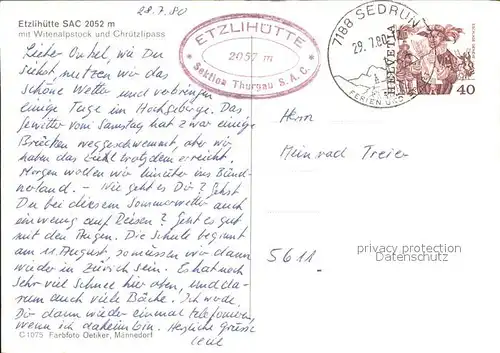 28.7.80
Etzlihütte SAC 2052 m
mit Witenalpstock und Chrützlipass
ETZLIHÜTTE
2057 m
Sektion Thurgau S.A.C.
7188 SEDRUN
29.7.80
FERIEN UND
HELVETIA
40
Lieber Onkel, wie Du
siehst, nutzen wir das
schöne Wetter und verbringen
einige Tage im Hochgebirge. Das
Gewitter vom Samstag hat zwar einige
Brücken weggeschwemmt, aber wir
haben das Ziel trotzdem erreicht.
Morgen wollen wir hinüber ins Bünd-
nerland. – Wie geht es Dir? Gehst
Du bei diesem Sommerwetter auch
ein wenig auf Reisen? Geht es gut
mit den Augen. Die Schule beginnt
am 11. August, so müssen wir dann
wieder in Zürich sein. Es hat noch
sehr viel Schnee hier oben, und da-
rum auch viele Bäche. Ich werde
Dir dann wieder einmal telefonieren,
wenn ich daheim bin. Herzliche Grüsse
Herrn
Meinrad Treier
5611
privacy protection
Datenschutz
C 1075 Farbfoto Oetiker, Männedorf